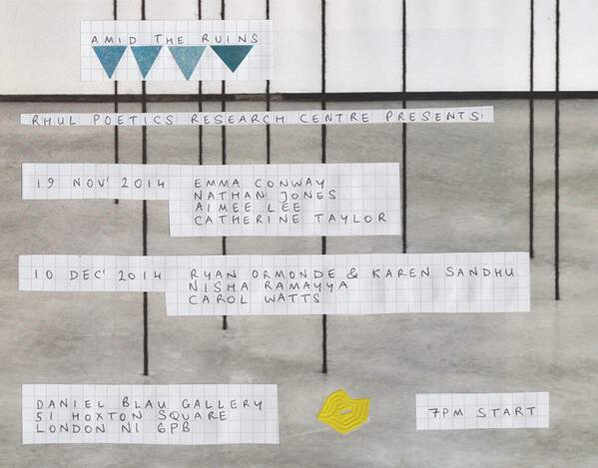 AMID THE RUINS
RHUL POETICS RESEARCH CENTRE PRESENTS:
19 NOV' 2014
EMMA CONWAY
NATHAN JONES
AIMEE LEE
CATHERINE TAYLOR
10 DEC' 2014
RYAN ORMONDE & KAREN SANDHU
NISHA RAMAYYA
CAROL WATTS
DANIEL BLAU GALLERY
51 HOXTON SQUARE
LONDON N1 6PB
7PM START